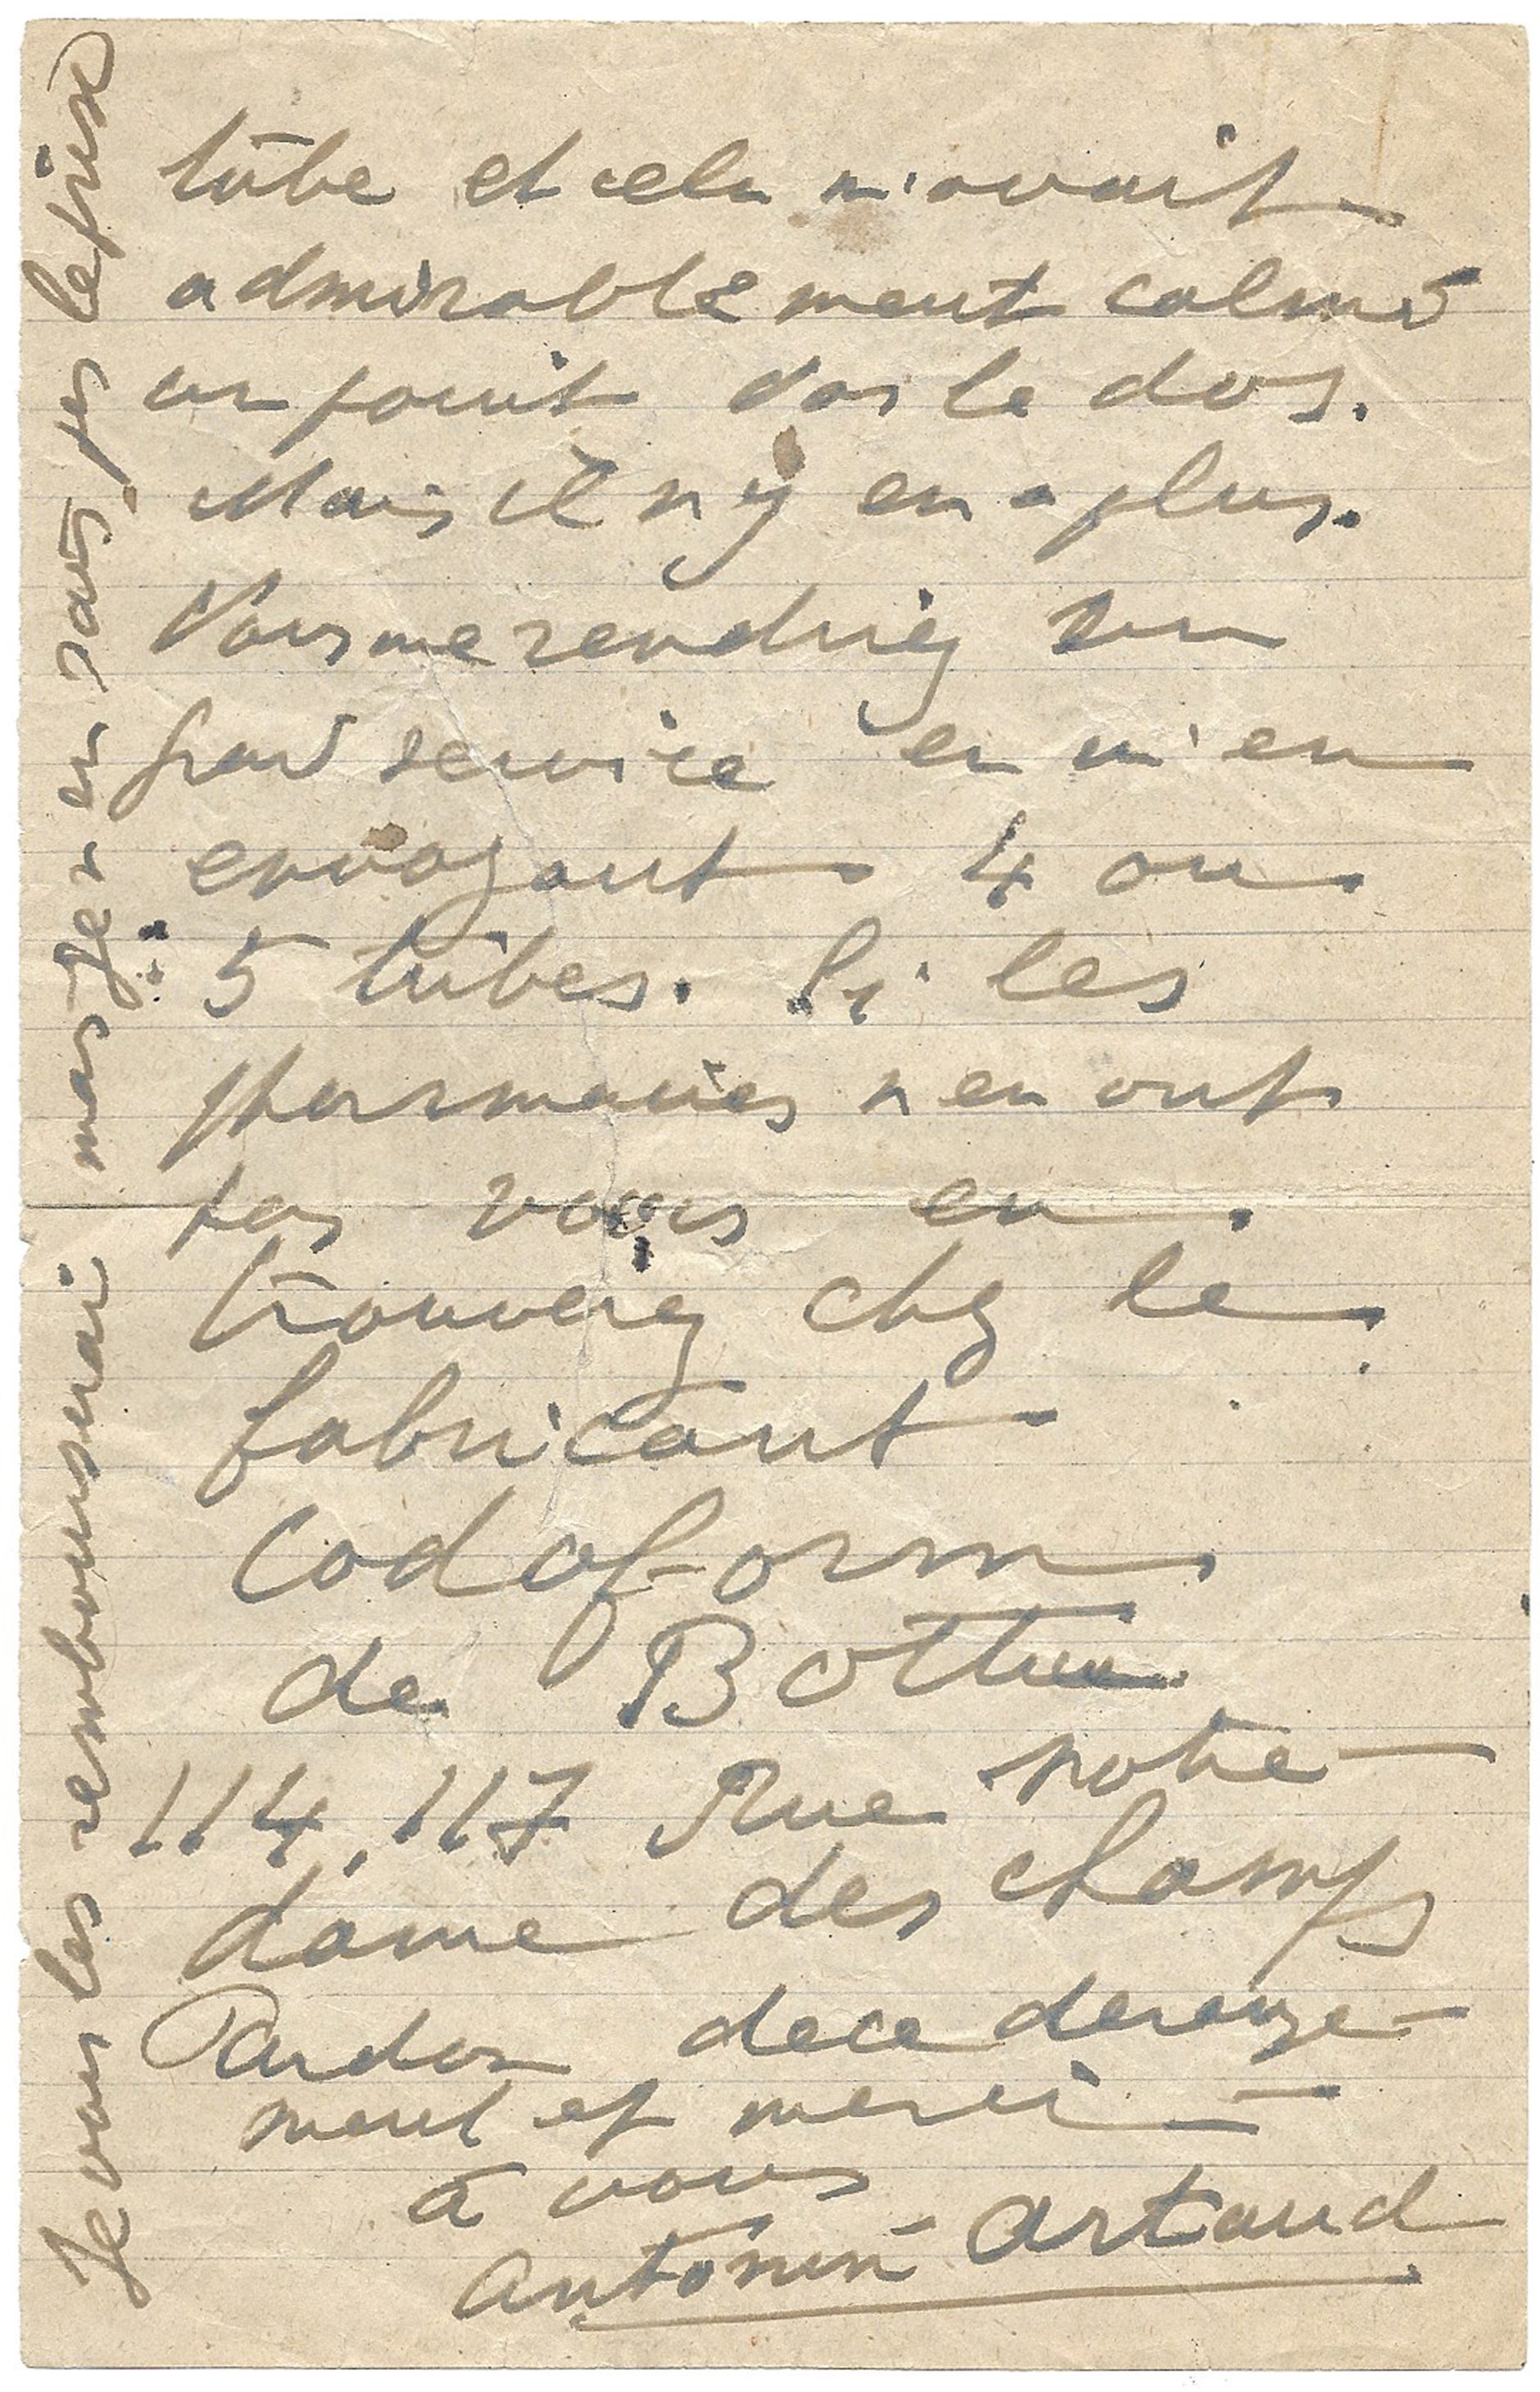 tube et cela m'avait
admirablement calmé
un point dans le dos.
Mais il n'y en a plus.
Vous me rendriez un
grand service en m'en
envoyant 4 ou
5 tubes. Si les
pharmacies n'en ont
pas vous en
trouverez chez le
fabricant
Codoform
de Bottu
114, 117 Rue notre
dame des champs
Pardon de ce derange-
ment et merci -
à vous
Antonin Artaud
Je vous les rembourserai mais je n'en sais pas le prix